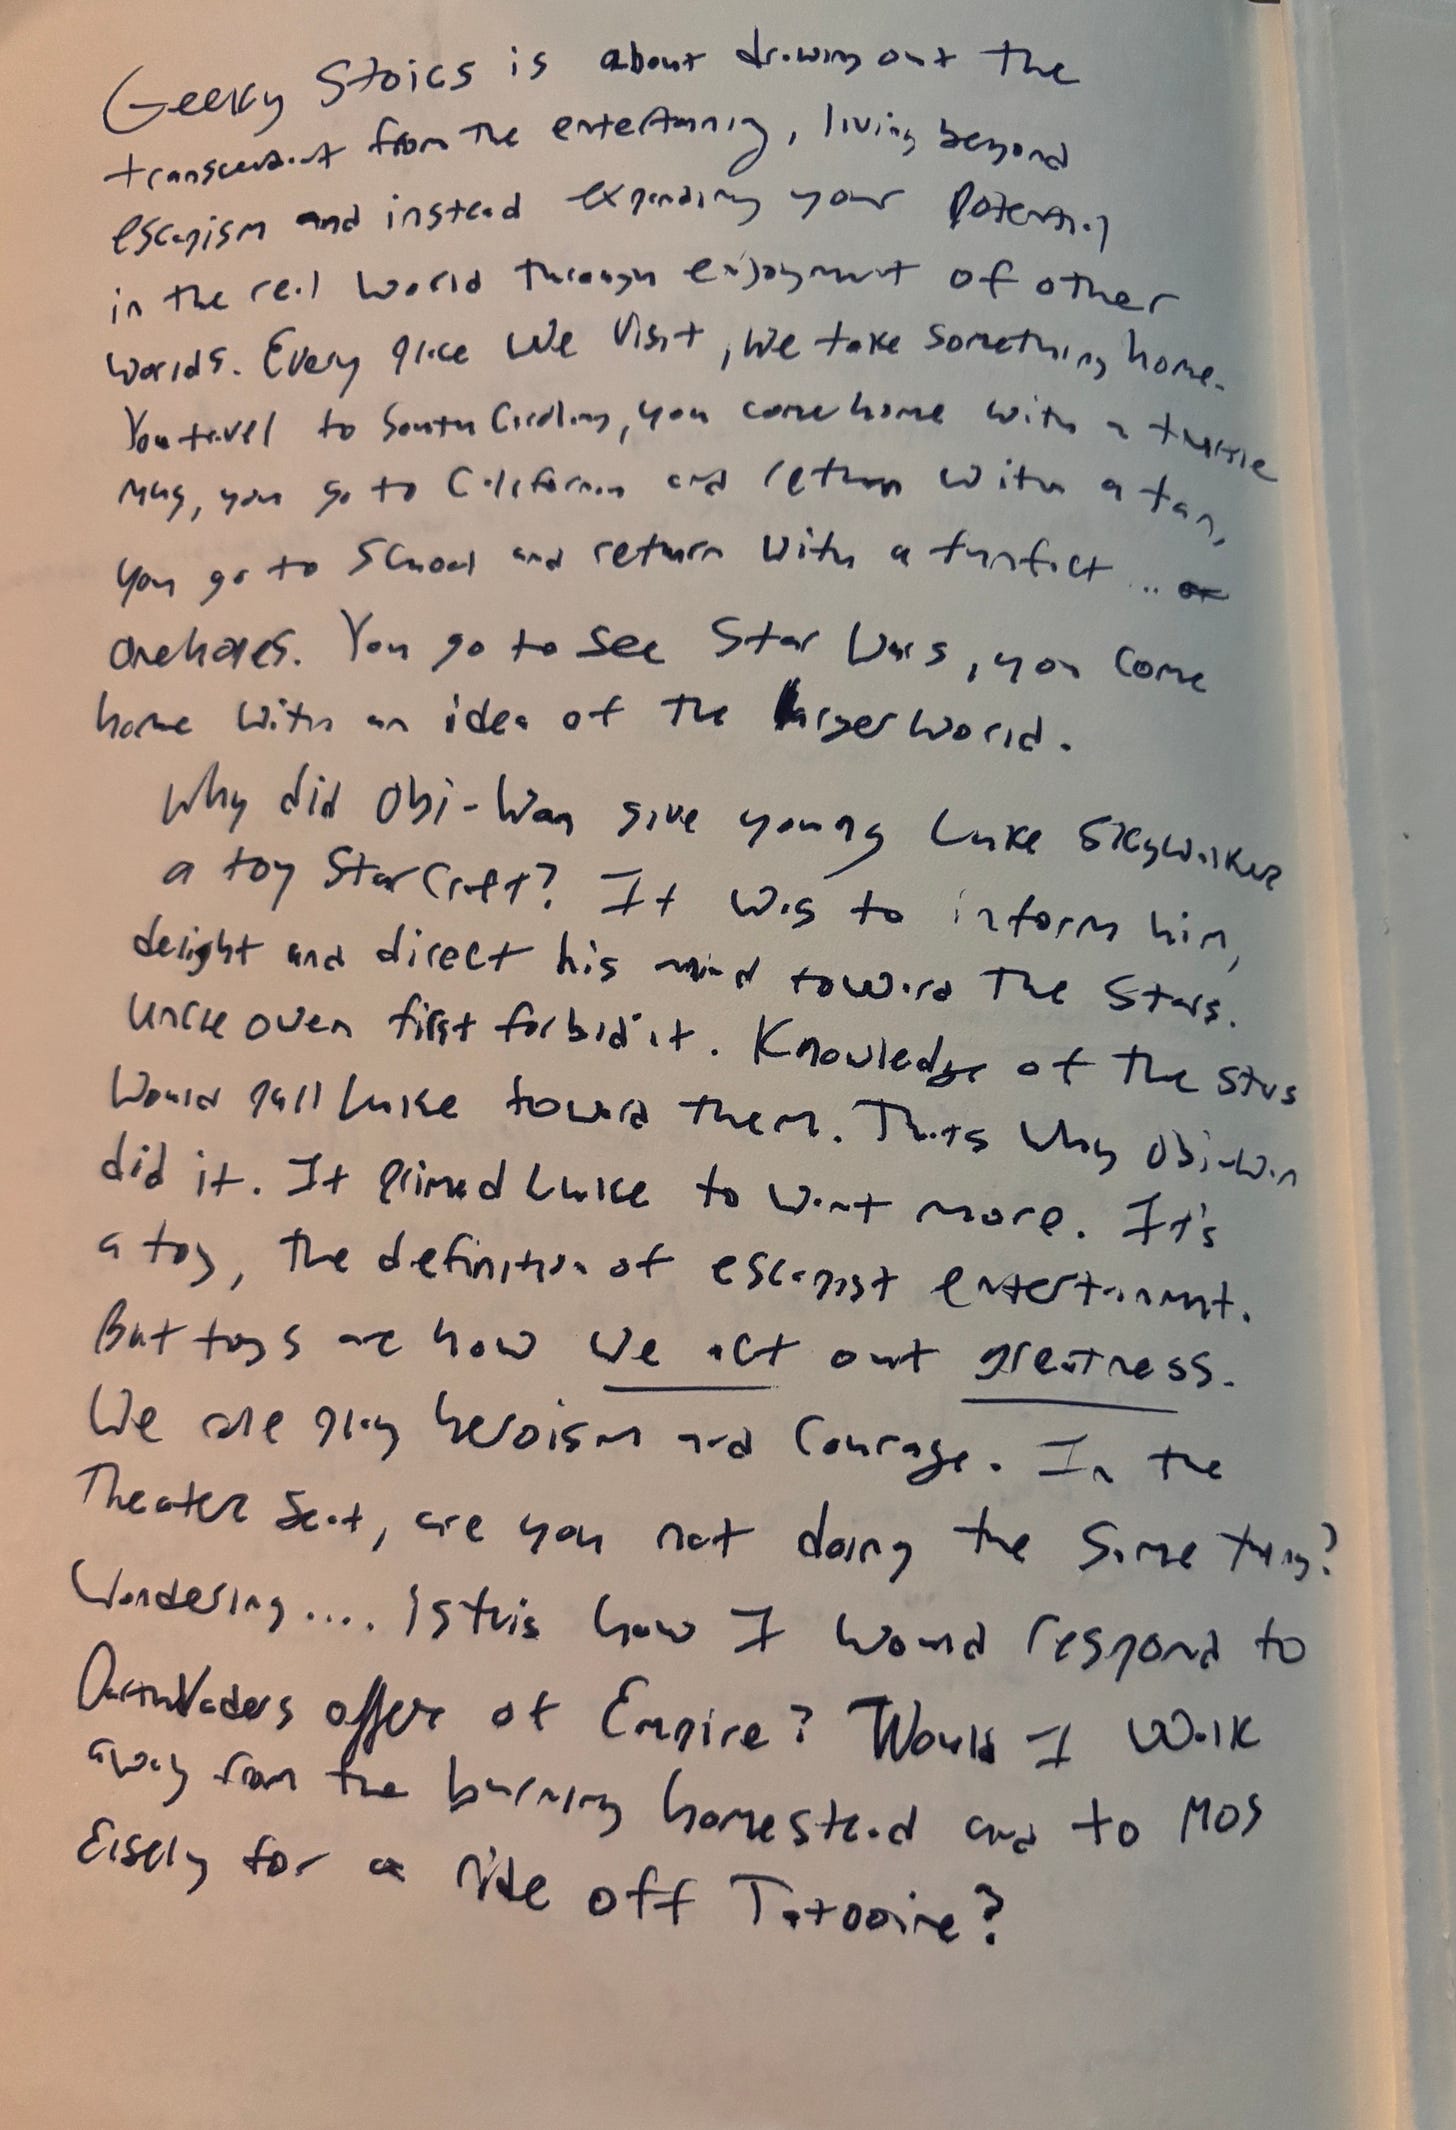 Geeky Stoics is about drawing out the
transcendent from the entertaining, living beyond
escapism and instead expanding your potential
in the real world through enjoyment of other
worlds. Every place we visit, we take something home.
You travel to South Carolina, you come home with a turtle
mug, you go to California and return with a tan,
you go to school and return with a funfact ..
one hopes. You go to see Star Wars, you come
home with an idea of the larger world.
Why did Obi-Wan give young Luke Skywalker
a toy Starcraft? It was to inform him,
delight and direct his mind toward the Stars.
Uncle Owen first forbid it. Knowledge of the stars
would pull Luke toward them. Thats why Obi-Wan
did it. It primed Luke to want more. It's
a toy, the definition of escapist entertainment.
But toys are how we act out greatness.
We play heroism and Courage. In the
Theater Seat, are you not doing the same thing?
Wondering.... is this how I would respond to
Darth Vaders offer of Empire? Would I walk
away from the burning homestead and to MOS
Eisely for a ride off Tatooine?